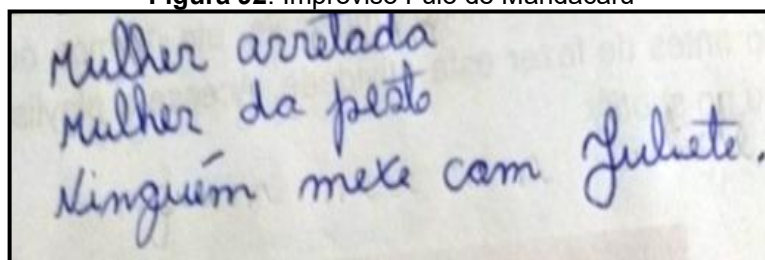 Figura 32: Improviso Pulo do Mandacaru
Mulher arretada
Mulher da peste
Ninguém mexe com Juliete.